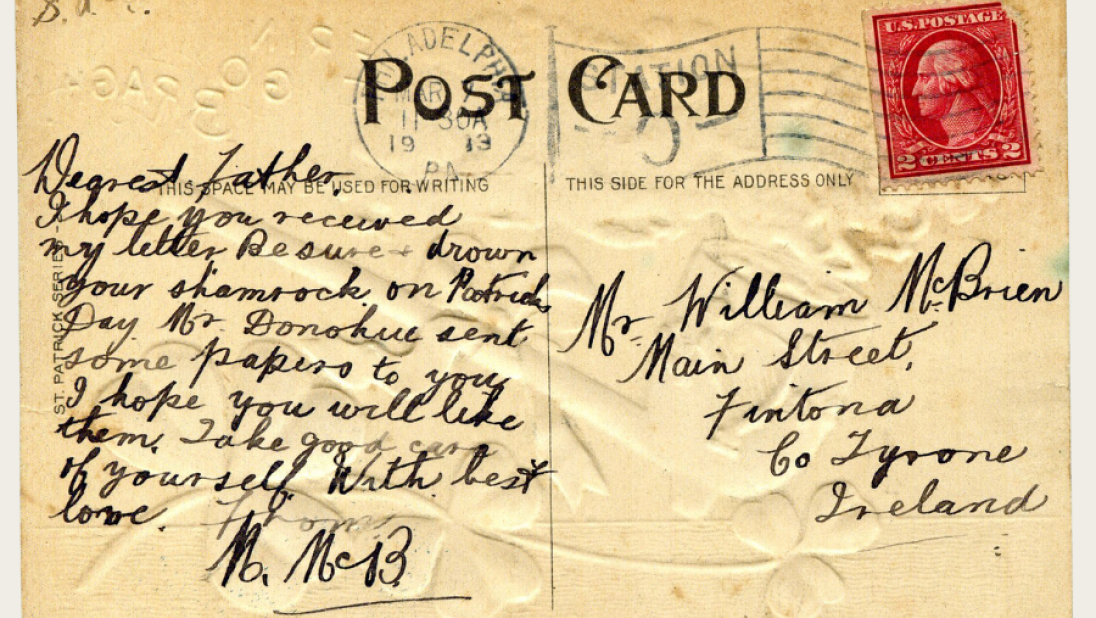 U.S.POSTAGE
2 CENTS 2
PHILADELPHIA
MAR
11 30A
19 13
PA.
STATION
POST CARD
THIS SPACE MAY BE USED FOR WRITING
THIS SIDE FOR THE ADDRESS ONLY
ST. PATRICK SERIES
ERIN
GO
BRAGH
Dearest Father,
I hope you received
my letter Be sure + drown
your shamrock on Patricks
Day Mr. Donohue sent
some papers to you,
I hope you will like
them. Take good care
of yourself. With best
love. From
M. McB.
Mr. William McBrien
Main Street,
Fintona
Co Tyrone
Ireland